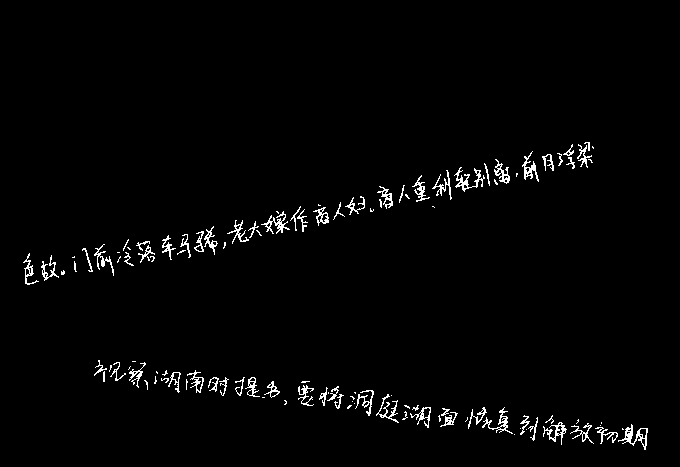 色故。门前冷落车马稀,老大嫁作商人妇。商人重利轻别离,前月浮梁
视察湖南时提出,要将洞庭湖面恢复到解放初期